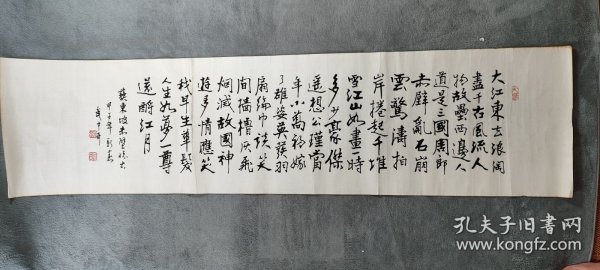 大江東去浪淘
盡千古風流人
物故壘西邊人
道是三國周郎
赤壁亂石崩
雲驚濤拍
岸捲起千堆
雪江山如畫一時
多少豪傑
遙想公瑾當
年小喬初嫁
了雄姿英發羽
扇綸巾談笑
間檣櫓灰飛
烟滅故國神
遊多情應笑
我早生華髮
人生如夢一尊
還酹江月
蘇東坡赤壁懷古
甲子年
孔夫子旧书网
www.kongfz.com